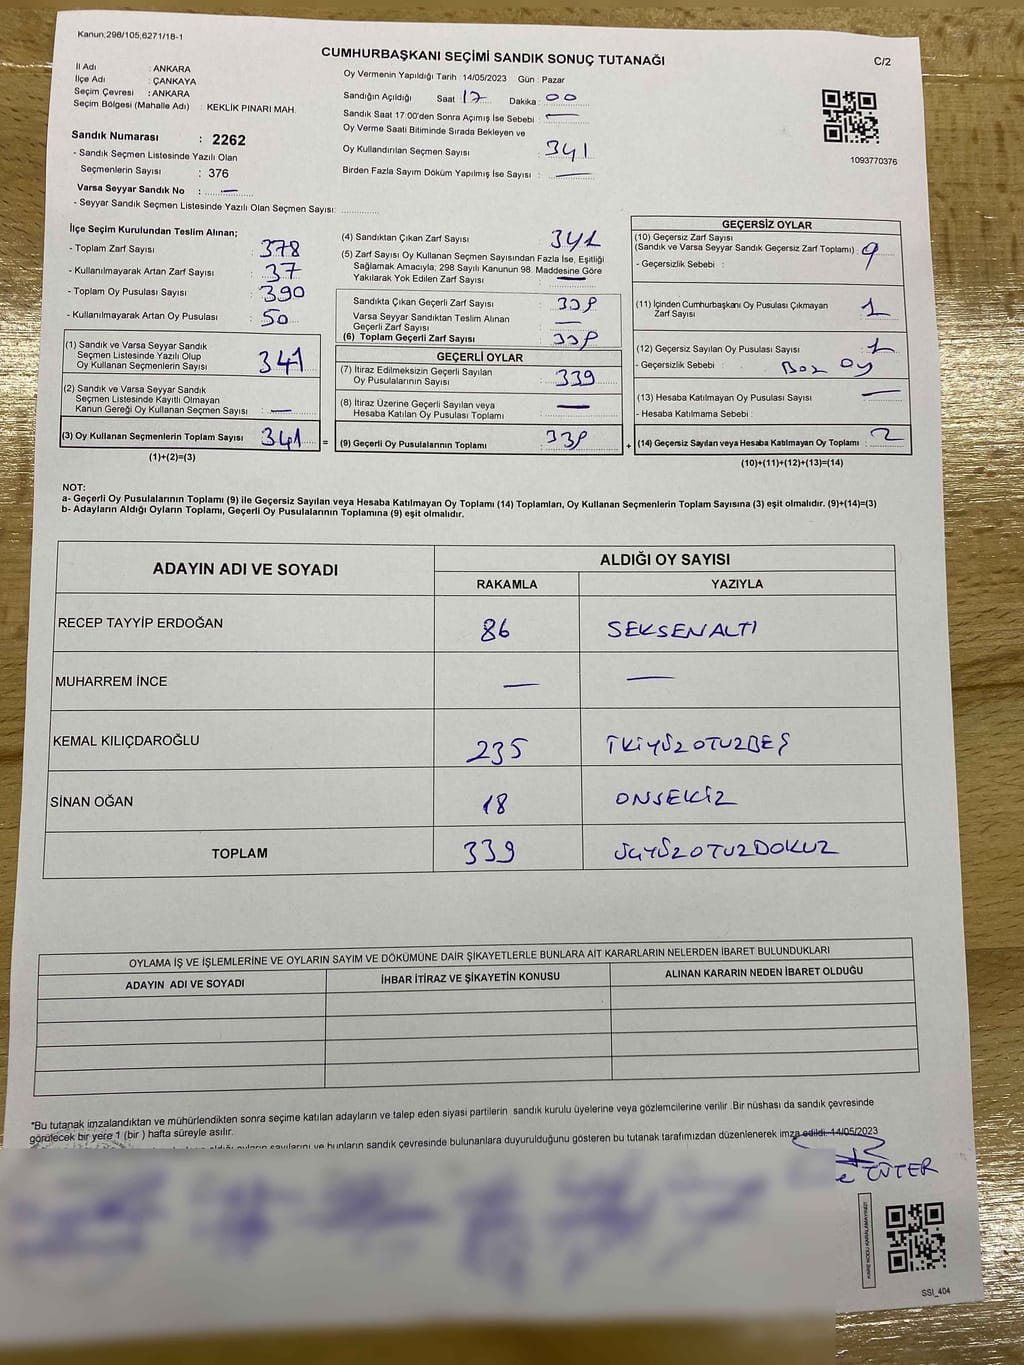 Kanun;298/105,6271/18-1
CUMHURBAŞKANI SEÇİMİ SANDIK SONUÇ TUTANAĞI
C/2
İl Adı : ANKARA
İlçe Adı : ÇANKAYA
Seçim Çevresi : ANKARA
Seçim Bölgesi (Mahalle Adı) : KEKLİK PINARI MAH.
Sandık Numarası : 2262
- Sandık Seçmen Listesinde Yazılı Olan
Seçmenlerin Sayısı : 376
Varsa Seyyar Sandık No : —
- Seyyar Sandık Seçmen Listesinde Yazılı Olan Seçmen Sayısı:
Oy Vermenin Yapıldığı Tarih : 14/05/2023 Gün : Pazar
Sandığın Açıldığı Saat 17 Dakika : 00
Sandık Saat 17:00'den Sonra Açımış İse Sebebi : —
Oy Verme Saati Bitiminde Sırada Bekleyen ve
Oy Kullandırılan Seçmen Sayısı : 341
Birden Fazla Sayım Döküm Yapılmış İse Sayısı : —
1093770376
İlçe Seçim Kurulundan Teslim Alınan;
- Toplam Zarf Sayısı : 378
- Kullanılmayarak Artan Zarf Sayısı : 37
- Toplam Oy Pusulası Sayısı : 390
- Kullanılmayarak Artan Oy Pusulası : 50
(1) Sandık ve Varsa Seyyar Sandık
Seçmen Listesinde Yazılı Olup
Oy Kullanan Seçmenlerin Sayısı : 341
(2) Sandık ve Varsa Seyyar Sandık
Seçmen Listesinde Kayıtlı Olmayan
Kanun Gereği Oy Kullanan Seçmen Sayısı : —
(3) Oy Kullanan Seçmenlerin Toplam Sayısı : 341 =
(1)+(2)=(3)
(4) Sandıktan Çıkan Zarf Sayısı : 341
(5) Zarf Sayısı Oy Kullanan Seçmen Sayısından Fazla İse, Eşitliği
Sağlamak Amacıyla, 298 Sayılı Kanunun 98. Maddesine Göre
Yakılarak Yok Edilen Zarf Sayısı : —
Sandıkta Çıkan Geçerli Zarf Sayısı : 339
Varsa Seyyar Sandıktan Teslim Alınan
Geçerli Zarf Sayısı : —
(6) Toplam Geçerli Zarf Sayısı : 339
GEÇERLİ OYLAR
(7) İtiraz Edilmeksizin Geçerli Sayılan
Oy Pusulalarının Sayısı : 339
(8) İtiraz Üzerine Geçerli Sayılan veya
Hesaba Katılan Oy Pusulası Toplamı : —
(9) Geçerli Oy Pusulalarının Toplamı : 339 +
GEÇERSİZ OYLAR
(10) Geçersiz Zarf Sayısı
(Sandık ve Varsa Seyyar Sandık Geçersiz Zarf Toplamı) :
- Geçersizlik Sebebi :
(11) İçinden Cumhurbaşkanı Oy Pusulası Çıkmayan
Zarf Sayısı : 1
(12) Geçersiz Sayılan Oy Pusulası Sayısı : 1
- Geçersizlik Sebebi : Boş oy
(13) Hesaba Katılmayan Oy Pusulası Sayısı : —
- Hesaba Katılmama Sebebi :
(14) Geçersiz Sayılan veya Hesaba Katılmayan Oy Toplamı : 2
(10)+(11)+(12)+(13)=(14)
NOT:
a- Geçerli Oy Pusulalarının Toplamı (9) ile Geçersiz Sayılan veya Hesaba Katılmayan Oy Toplamı (14) Toplamları, Oy Kullanan Seçmenlerin Toplam Sayısına (3) eşit olmalıdır. (9)+(14)=(3)
b- Adayların Aldığı Oyların Toplamı, Geçerli Oy Pusulalarının Toplamına (9) eşit olmalıdır.
ADAYIN ADI VE SOYADI
ALDIĞI OY SAYISI
RAKAMLA YAZIYLA
RECEP TAYYİP ERDOĞAN 86 SEKSENALTI
MUHARREM İNCE — —
KEMAL KILIÇDAROĞLU 235 İKİYÜZOTUZBEŞ
SİNAN OĞAN 18 ONSEKİZ
TOPLAM 339 ÜÇYÜZOTUZDOKUZ
OYLAMA İŞ VE İŞLEMLERİNE VE OYLARIN SAYIM VE DÖKÜMÜNE DAİR ŞİKAYETLERLE BUNLARA AİT KARARLARIN NELERDEN İBARET BULUNDUKLARI
ADAYIN ADI VE SOYADI İHBAR İTİRAZ VE ŞİKAYETİN KONUSU ALINAN KARARIN NEDEN İBARET OLDUĞU
*Bu tutanak imzalandıktan ve mühürlendikten sonra seçime katılan adayların ve talep eden siyasi partilerin sandık kurulu üyelerine veya gözlemcilerine verilir .Bir nüshası da sandık çevresinde
görülecek bir yere 1 (bir ) hafta süreyle asılır.
oyların sayılarını ve bunların sandık çevresinde bulunanlara duyurulduğunu gösteren bu tutanak tarafımızdan düzenlenerek imza edildi. 14/05/2023
KARE KODU KARALAMAYINIZ!
SSI_404